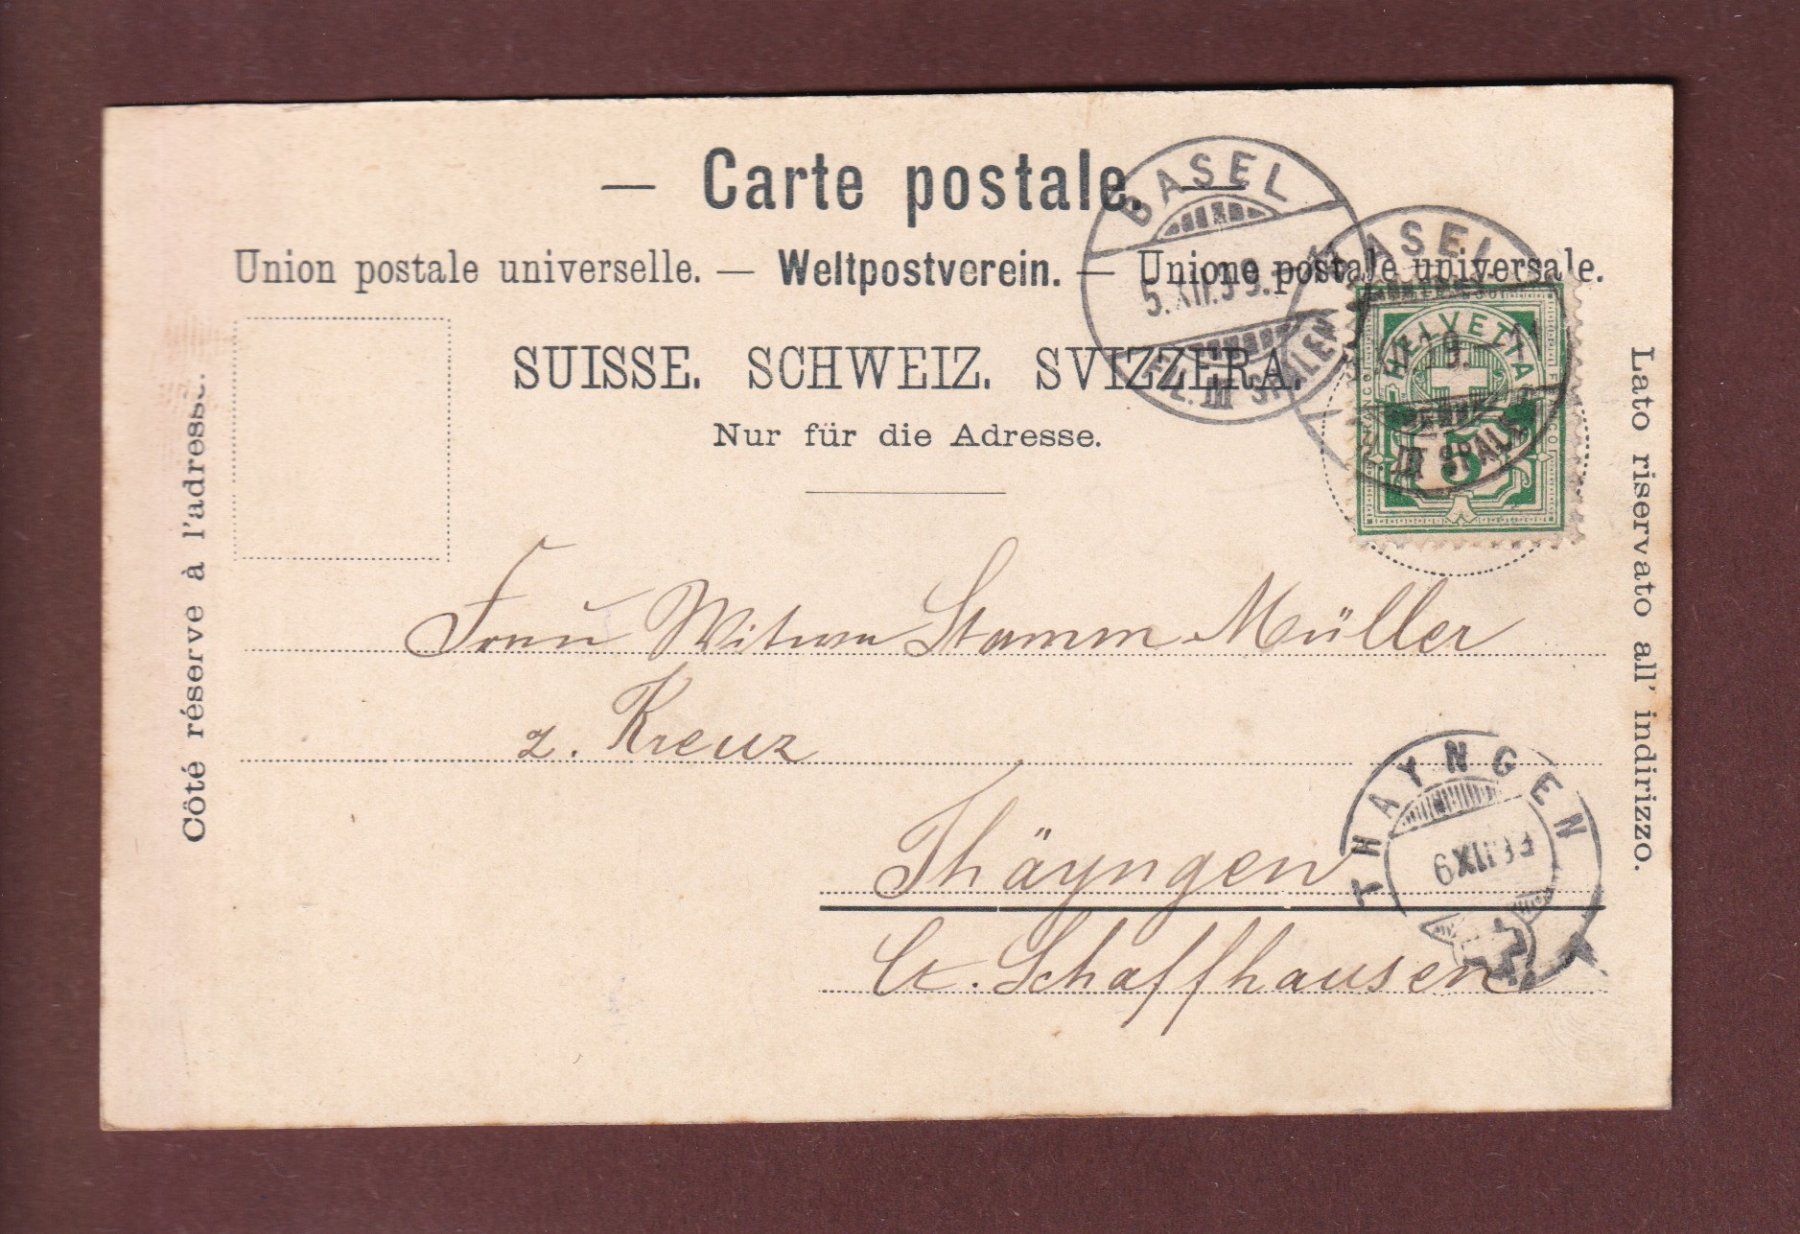 — Carte postale. —
Union postale universelle. — Weltpostverein. — Unione postale universale.
SUISSE. SCHWEIZ. SVIZZERA.
Nur für die Adresse.
Côté réserve à l'adresse.
Lato riservato all' indirizzo.
BASEL
5.XII.99.
FIL. III SPALEN
BASEL
FIL. III SPALEN
HELVETIA
FRANCO
5
Frau Witwe Stamm-Müller
z. Kreuz
Thäyngen
Ct. Schaffhausen
THAYNGEN
6 XII 99